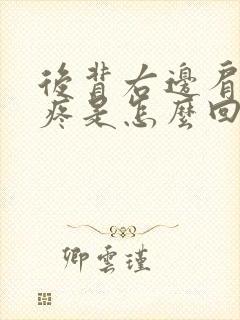 後背右邊肩
疼是怎麼回
卿雲瑾